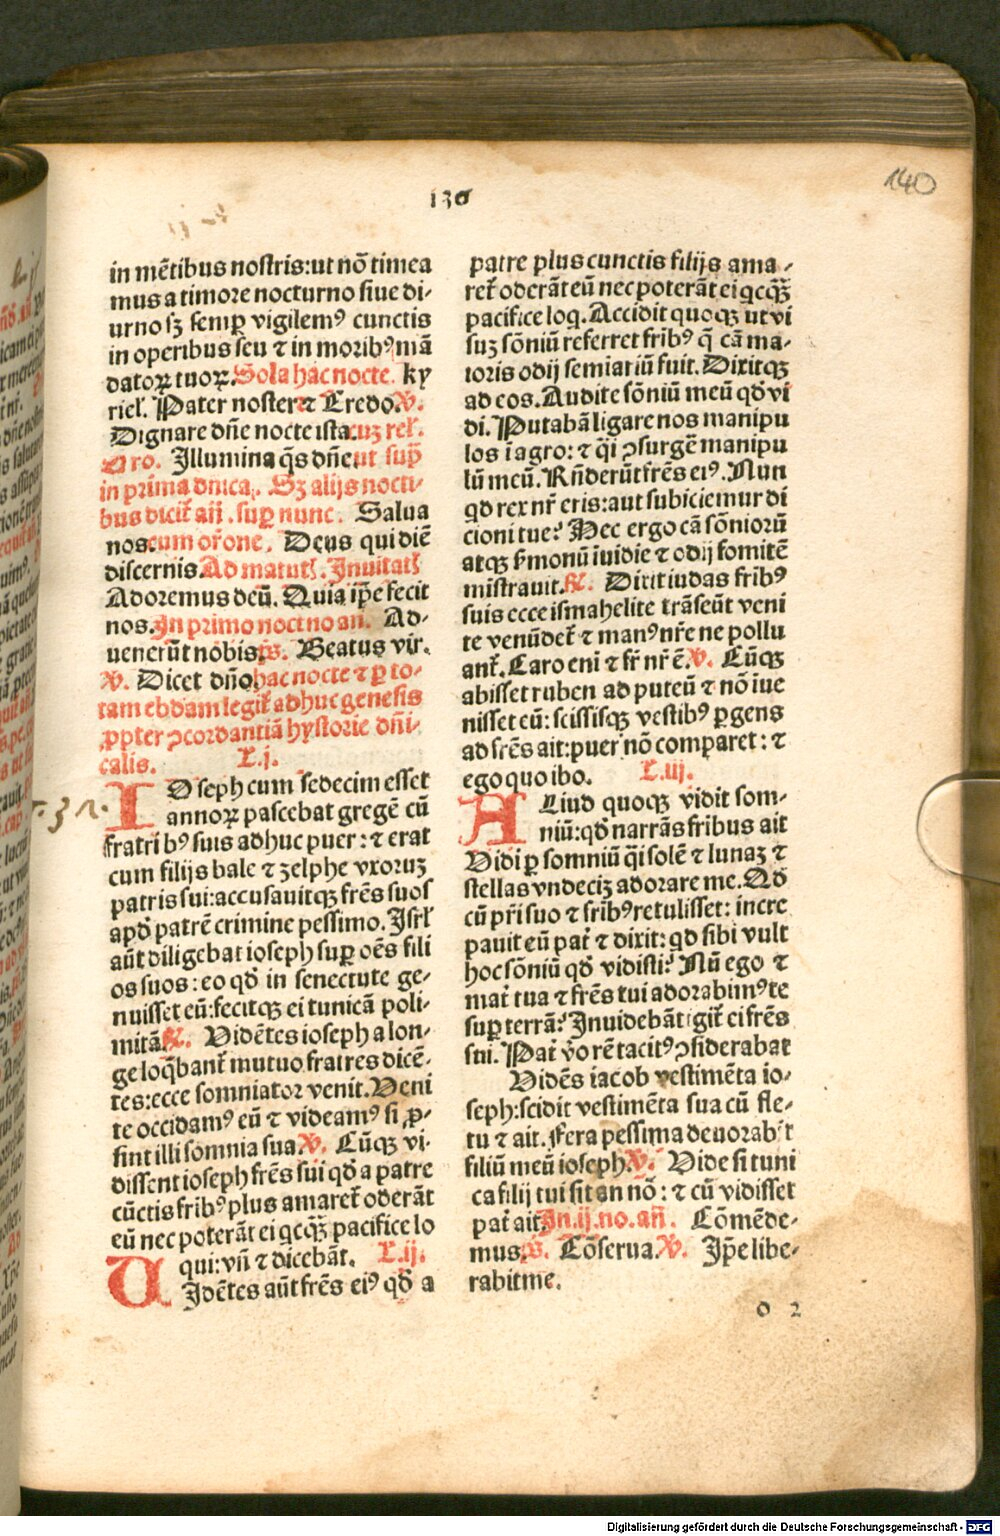 136
140
in mẽtibus nostris:ut nõ timea
mus a timore nocturno siue di-
urno sꝫ semꝑ vigilemꝰ cunctis
in operibus seu ⁊ in moribꝰ mã
datoꝝ tuoꝝ. Sola hac nocte. ky
riel̃. Pater noster ⁊ Credo. ℣.
Dignare dñe nocte ista. cuꝫ rel̃.
Oro. Illumina q̃s dñe ut sup̃
in prima dnica. Sꝫ alijs nocti-
bus dicit̃ añ. sup nunc. Salua
nos. cum or̃one. Deus qui diẽ
discernis. Ad matut̃. Inuitat̃
Adoremus deũ. Quia ip̃e fecit
nos. In primo noct no añ. Ad-
uenerũt nobis. ps. Beatus vir.
℣. Dicet dño. hac nocte ⁊ ꝑ to-
tam ebdam legit̃ adhuc genesis
ꝓpter ꝯcordantiã hystorie dñi-
calis. L.j.
IOseph cum sedecim esset
annoꝝ pascebat gregẽ cũ
fratribꝰ suis adhuc puer: ⁊ erat
cum filijs bale ⁊ zelphe vxoruꝫ
patris sui: accusauitqꝫ frẽs suos
apd̃ patrẽ crimine pessimo. Isrl̃
aũt diligebat ioseph suꝑ oẽs fili
os suos: eo qd̃ in senectute ge-
nuisset eũ: fecitqꝫ ei tunicã poli-
mitã. ℟. Vidẽtes ioseph a lon-
ge loq̃bant̃ mutuo fratres dicẽ-
tes: ecce somniator venit. Veni
te occidamꝰ eũ ⁊ videamꝰ si ꝓ-
sint illi somnia sua. ℣. Cũqꝫ vi-
dissent ioseph frẽs sui qd̃ a patre
cũctis fribꝰ plus amaret̃ oderãt
eũ nec poterãt ei qcq̃ꝫ pacifice lo
qui: vñ ⁊ dicebãt. L.ij.
UIdẽtes aũt frẽs eiꝰ qd̃ a
patre plus cunctis filijs ama-
ret̃ oderãt eũ nec poterãt ei qcq̃ꝫ
pacifice loq. Accidit quoqꝫ ut vi
suꝫ sõniũ referret fribꝰ q̃ cã ma-
ioris odij semiariũ fuit. Dixitqꝫ
ad eos. Audite sõniũ meũ qd̃ vi
di. Putabã ligare nos manipu
los ĩ agro: ⁊ q̃i ꝯsurgẽ manipu
lũ meũ. Rñderũt frẽs eiꝰ. Nun
qd rex nr̃ eris: aut subiciemur di
cioni tue? Hec ergo cã sõniorũ
atqꝫ s̃monũ iuidie ⁊ odij fomitẽ
mistrauit. ℟. Dixit iudas fribꝰ
suis ecce ismahelite trãseũt veni
te venũdet̃ ⁊ manꝰ nr̃e ne pollu
ant̃. Caro eni ⁊ fr̃ nr̃ ẽ. ℣. Cũqꝫ
abisset ruben ad puteũ ⁊ nõ iue
nisset eũ: scissisqꝫ vestibꝰ ꝑgens
ad frẽs ait: puer nõ comparet: ⁊
ego quo ibo. L.iij.
ALiud quoqꝫ vidit som-
niũ: qd̃ narrãs fribus ait
Vidi ꝑ somniũ q̃i solẽ ⁊ lunaꝫ ⁊
stellas vndeciꝫ adorare me. Qd̃
cũ pr̃i suo ⁊ fribꝰ retulisset: incre
pauit eũ pat̃ ⁊ dixit: qd sibi vult
hoc sõniũ qd̃ vidisti? Nũ ego ⁊
mat̃ tua ⁊ frẽs tui adorabimꝰ te
suꝑ terrã? Inuidebãt igit̃ ei frẽs
sui. Pat̃ v̾o rẽ tacitꝰ ꝯsiderabat
Vidẽs iacob vestimẽta io-
seph: scidit vestimẽta sua cũ fle-
tu ⁊ ait. Fera pessima deuorabit
filiũ meũ ioseph. ℣. Vide si tuni
ca filij tui sit an nõ: ⁊ cũ vidisset
pat̃ ait. In.ij.no.añ. Cõmẽde-
mus. ps. Cõserua. ℣. Ip̃e libe-
rabit me.
o 2
Digitalisierung gefördert durch die Deutsche Forschungsgemeinschaft - DFG